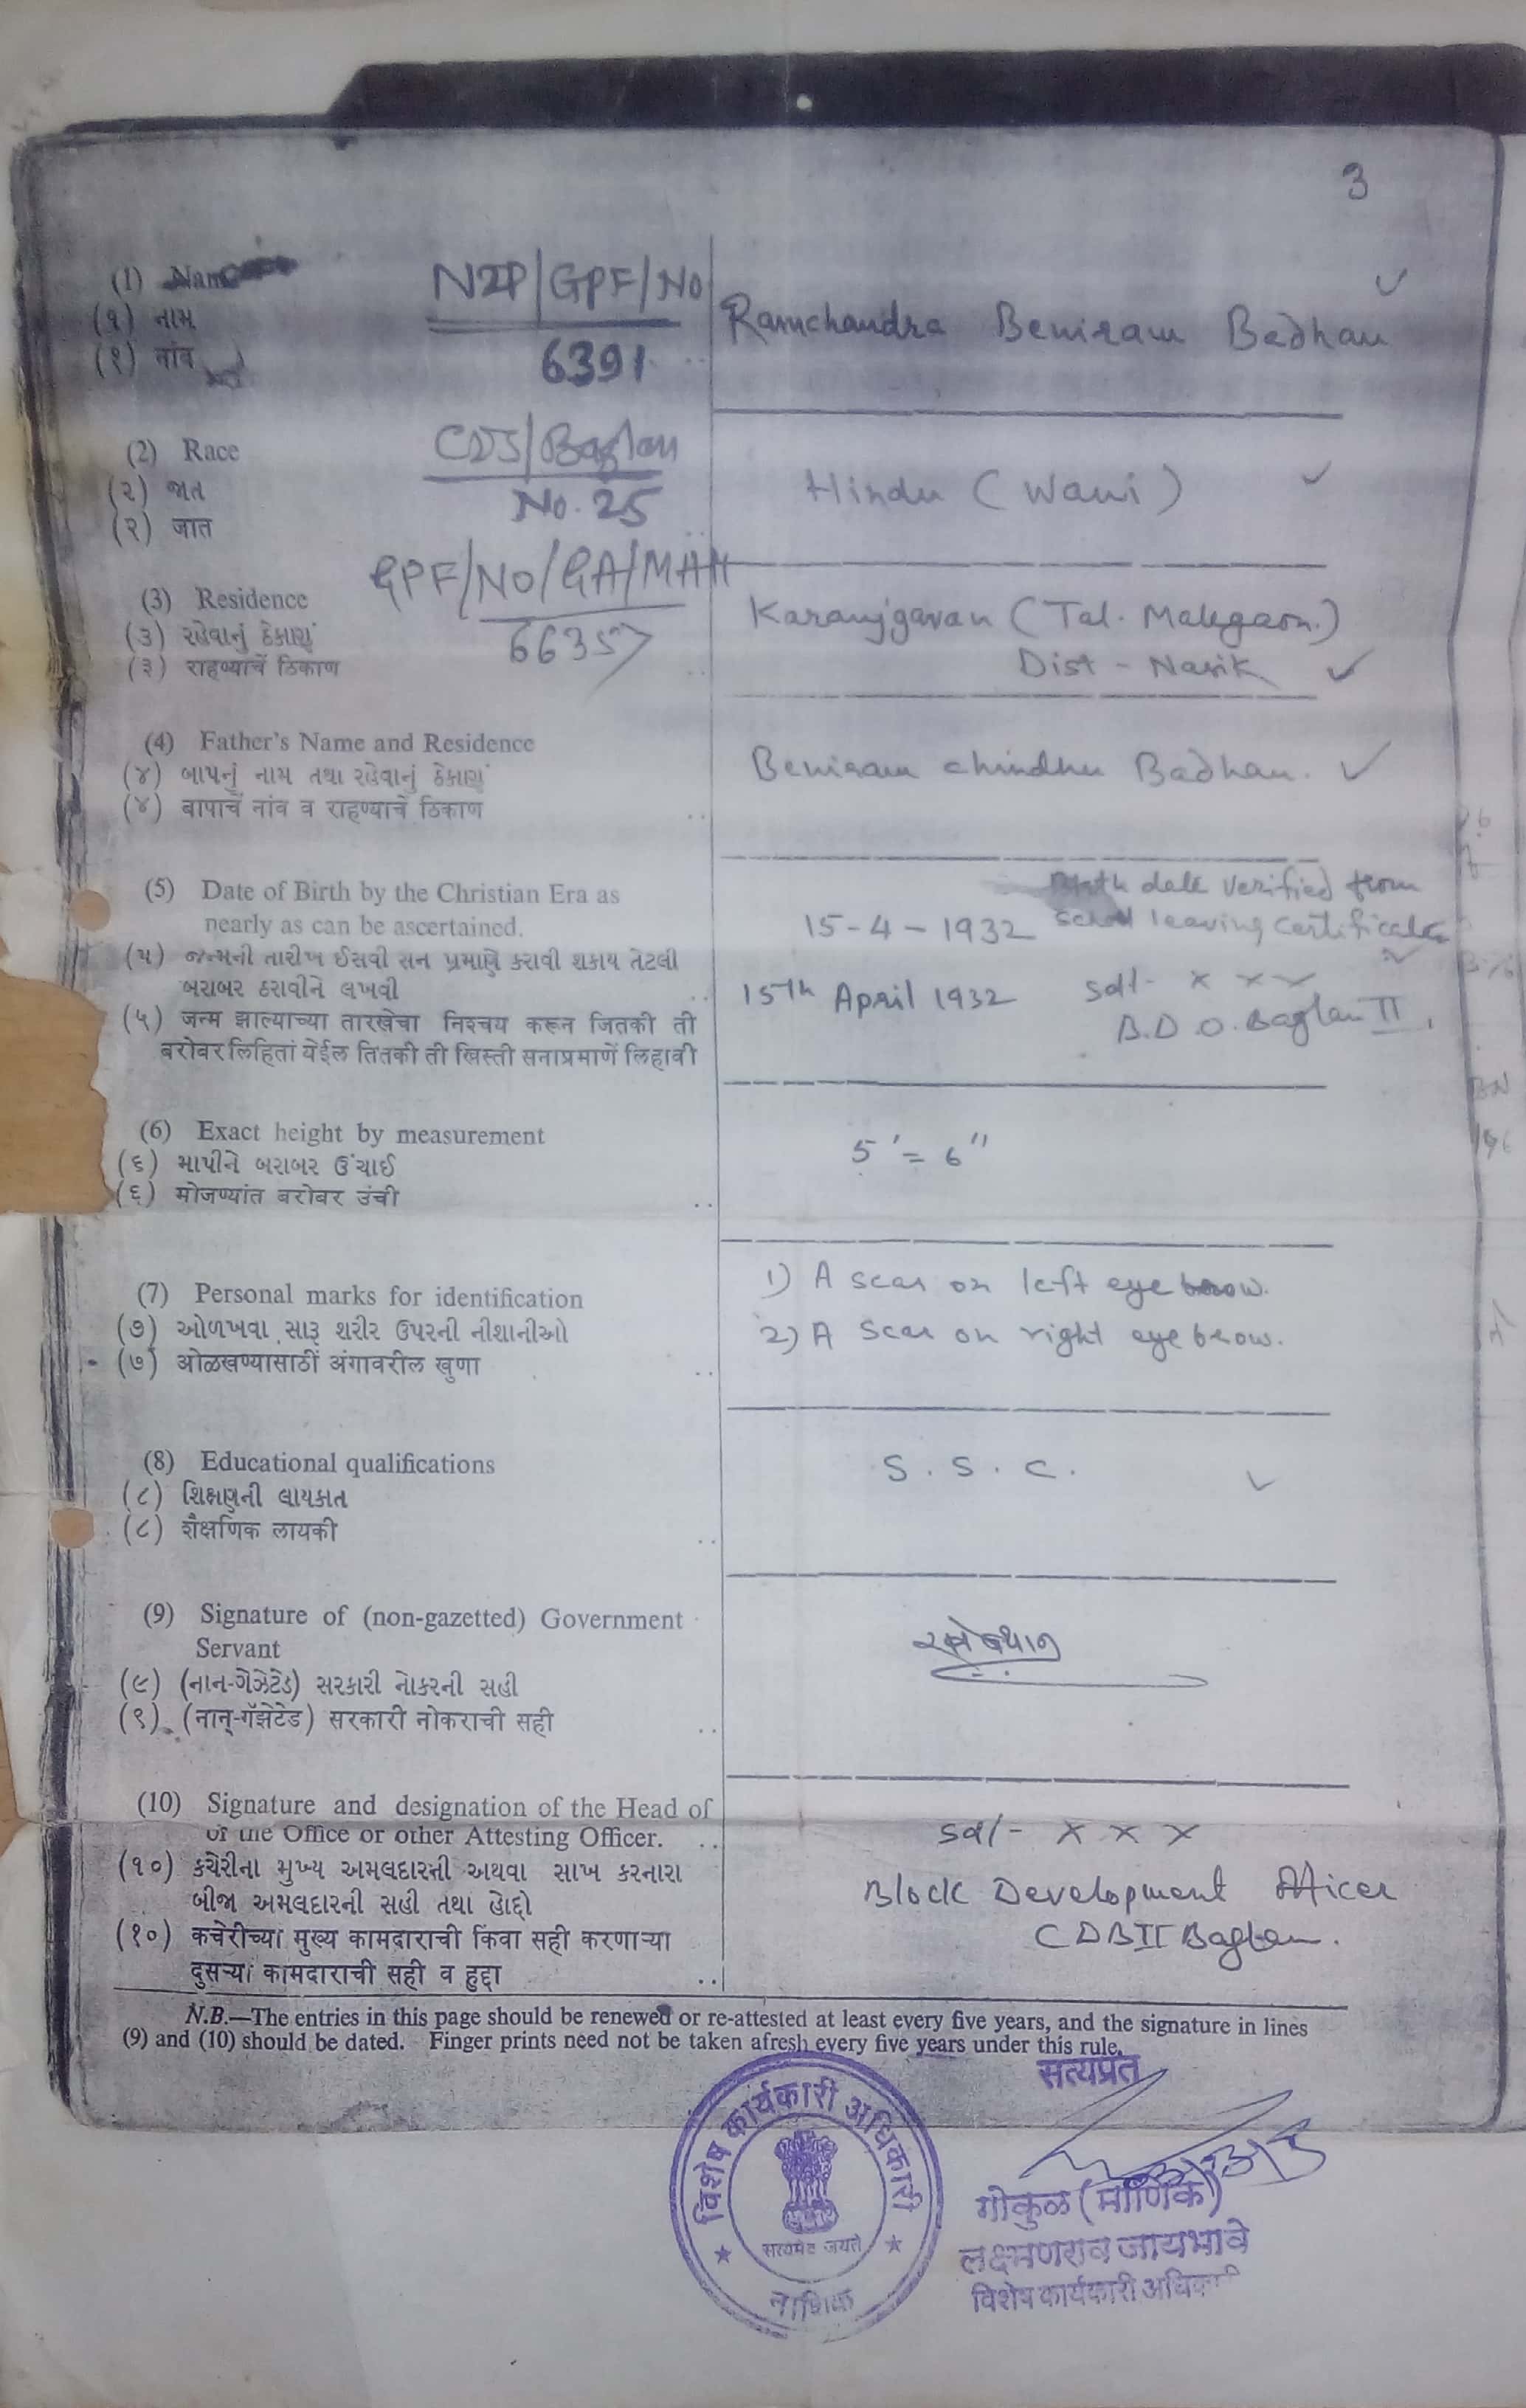 3
(1) Name
(૧) નામ
(१) नांव
NZP/GPF/No
6391
Ramchandra Beniram Badhan
(2) Race
(૨) જાત
(२) जात
CDS/Baglan
No. 25
Hindu (Wani)
GPF/NO/GA/MAH
66357
(3) Residence
(૩) રહેવાનું ઠેકાણું
(३) राहण्याचें ठिकाण
Karanjgavan (Tal. Malegaon.)
Dist - Nasik
(4) Father's Name and Residence
(૪) બાપનું નામ તથા રહેવાનું ઠેકાણું
(४) बापाचें नांव व राहण्याचें ठिकाण
Beniram chindhu Badhan.
(5) Date of Birth by the Christian Era as
nearly as can be ascertained.
(૫) જન્મની તારીખ ઈસવી સન પ્રમાણે કરાવી શકાય તેટલી
બરાબર ઠરાવીને લખવી
(५) जन्म झाल्याच्या तारखेचा निश्चय करून जितकी ती
बरोबर लिहितां येईल तितकी ती ख्रिस्ती सनाप्रमाणें लिहावी
15-4-1932
Birth date verified from
school leaving certificate
15th April 1932
Sd/- x x x
B.D.O. Baglan II
(6) Exact height by measurement
(૬) માપીને બરાબર ઉંચાઈ
(६) मोजण्यांत बरोबर उंची
5' = 6"
(7) Personal marks for identification
(૭) ઓળખવા સારૂ શરીર ઉપરની નીશાનીઓ
(७) ओळखण्यासाठीं अंगावरील खुणा
1) A scar on left eye brow.
2) A scar on right eye brow.
(8) Educational qualifications
(૮) શિક્ષણની લાયકાત
(८) शैक्षणिक लायकी
S. S. C.
(9) Signature of (non-gazetted) Government
Servant
(૯) (નાન-ગેઝેટેડ) સરકારી નોકરની સહી
(९) (नान्-गॅझेटेड) सरकारी नोकराची सही
(10) Signature and designation of the Head of
of the Office or other Attesting Officer.
(૧૦) કચેરીના મુખ્ય અમલદારની અથવા સાખ કરનારા
બીજા અમલદારની સહી તથા હોદ્દો
(१०) कचेरीच्या मुख्य कामदाराची किंवा सही करणाऱ्या
दुसऱ्या कामदाराची सही व हुद्दा
Sd/- x x x
Block Development Officer
CDB II Baglan.
N.B.—The entries in this page should be renewed or re-attested at least every five years, and the signature in lines
(9) and (10) should be dated. Finger prints need not be taken afresh every five years under this rule.
सत्यप्रत
विशेष कार्यकारी अधिकारी
सत्यमेव जयते
नाशिक
गोकुळ (माणिक)
लक्ष्मणराव जायभावे
विशेष कार्यकारी अधिकारी